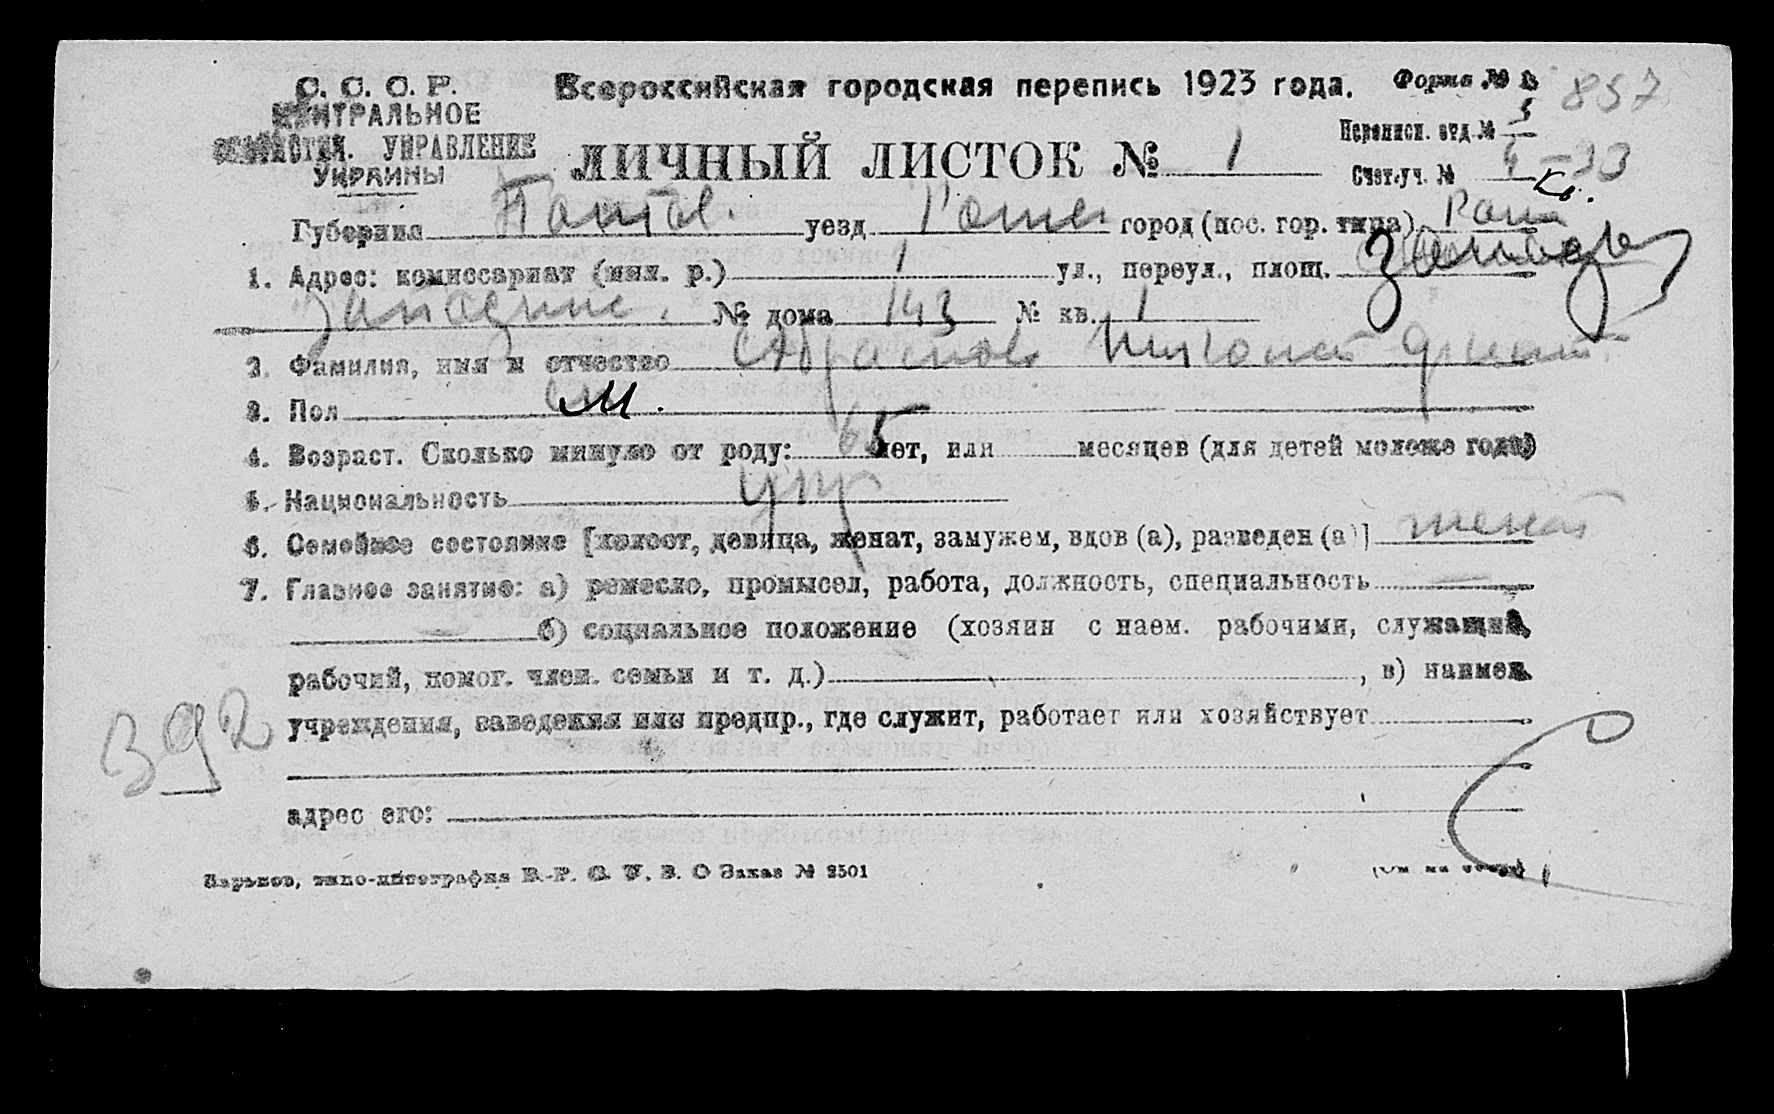 С. С. С. Р. Всероссийская городская перепись 1923 года. Форма № 857
ЦЕНТРАЛЬНОЕ
СТАТИСТИЧ. УПРАВЛЕНИЕ
УКРАИНЫ
Переписн. отд. № 3
ЛИЧНЫЙ ЛИСТОК № 1
Счет. уч. № 4-33
Кв.
Губерния Полтав. уезд Ромен город (пос. гор. типа) Ром
1. Адрес: комиссариат (мил. р.) 1 ул., переул., площ.
№ дома 143 № кв. 1
2. Фамилия, имя и отчество
3. Пол М.
4. Возраст. Сколько минуло от роду: 65 лет, или месяцев (для детей моложе года)
5. Национальность укр
6. Семейное состояние [холост, девица, женат, замужем, вдов (а), разведен (а)] женат
7. Главное занятие: а) ремесло, промысел, работа, должность, специальность —
— б) социальное положение (хозяин с наем. рабочими, служащий,
рабочий, помог. член. семьи и т. д.) , в) наимен.
392 учреждения, заведения или предпр., где служит, работает или хозяйствует
адрес его:
Харьков, типо-литография В. Заказ № 2501